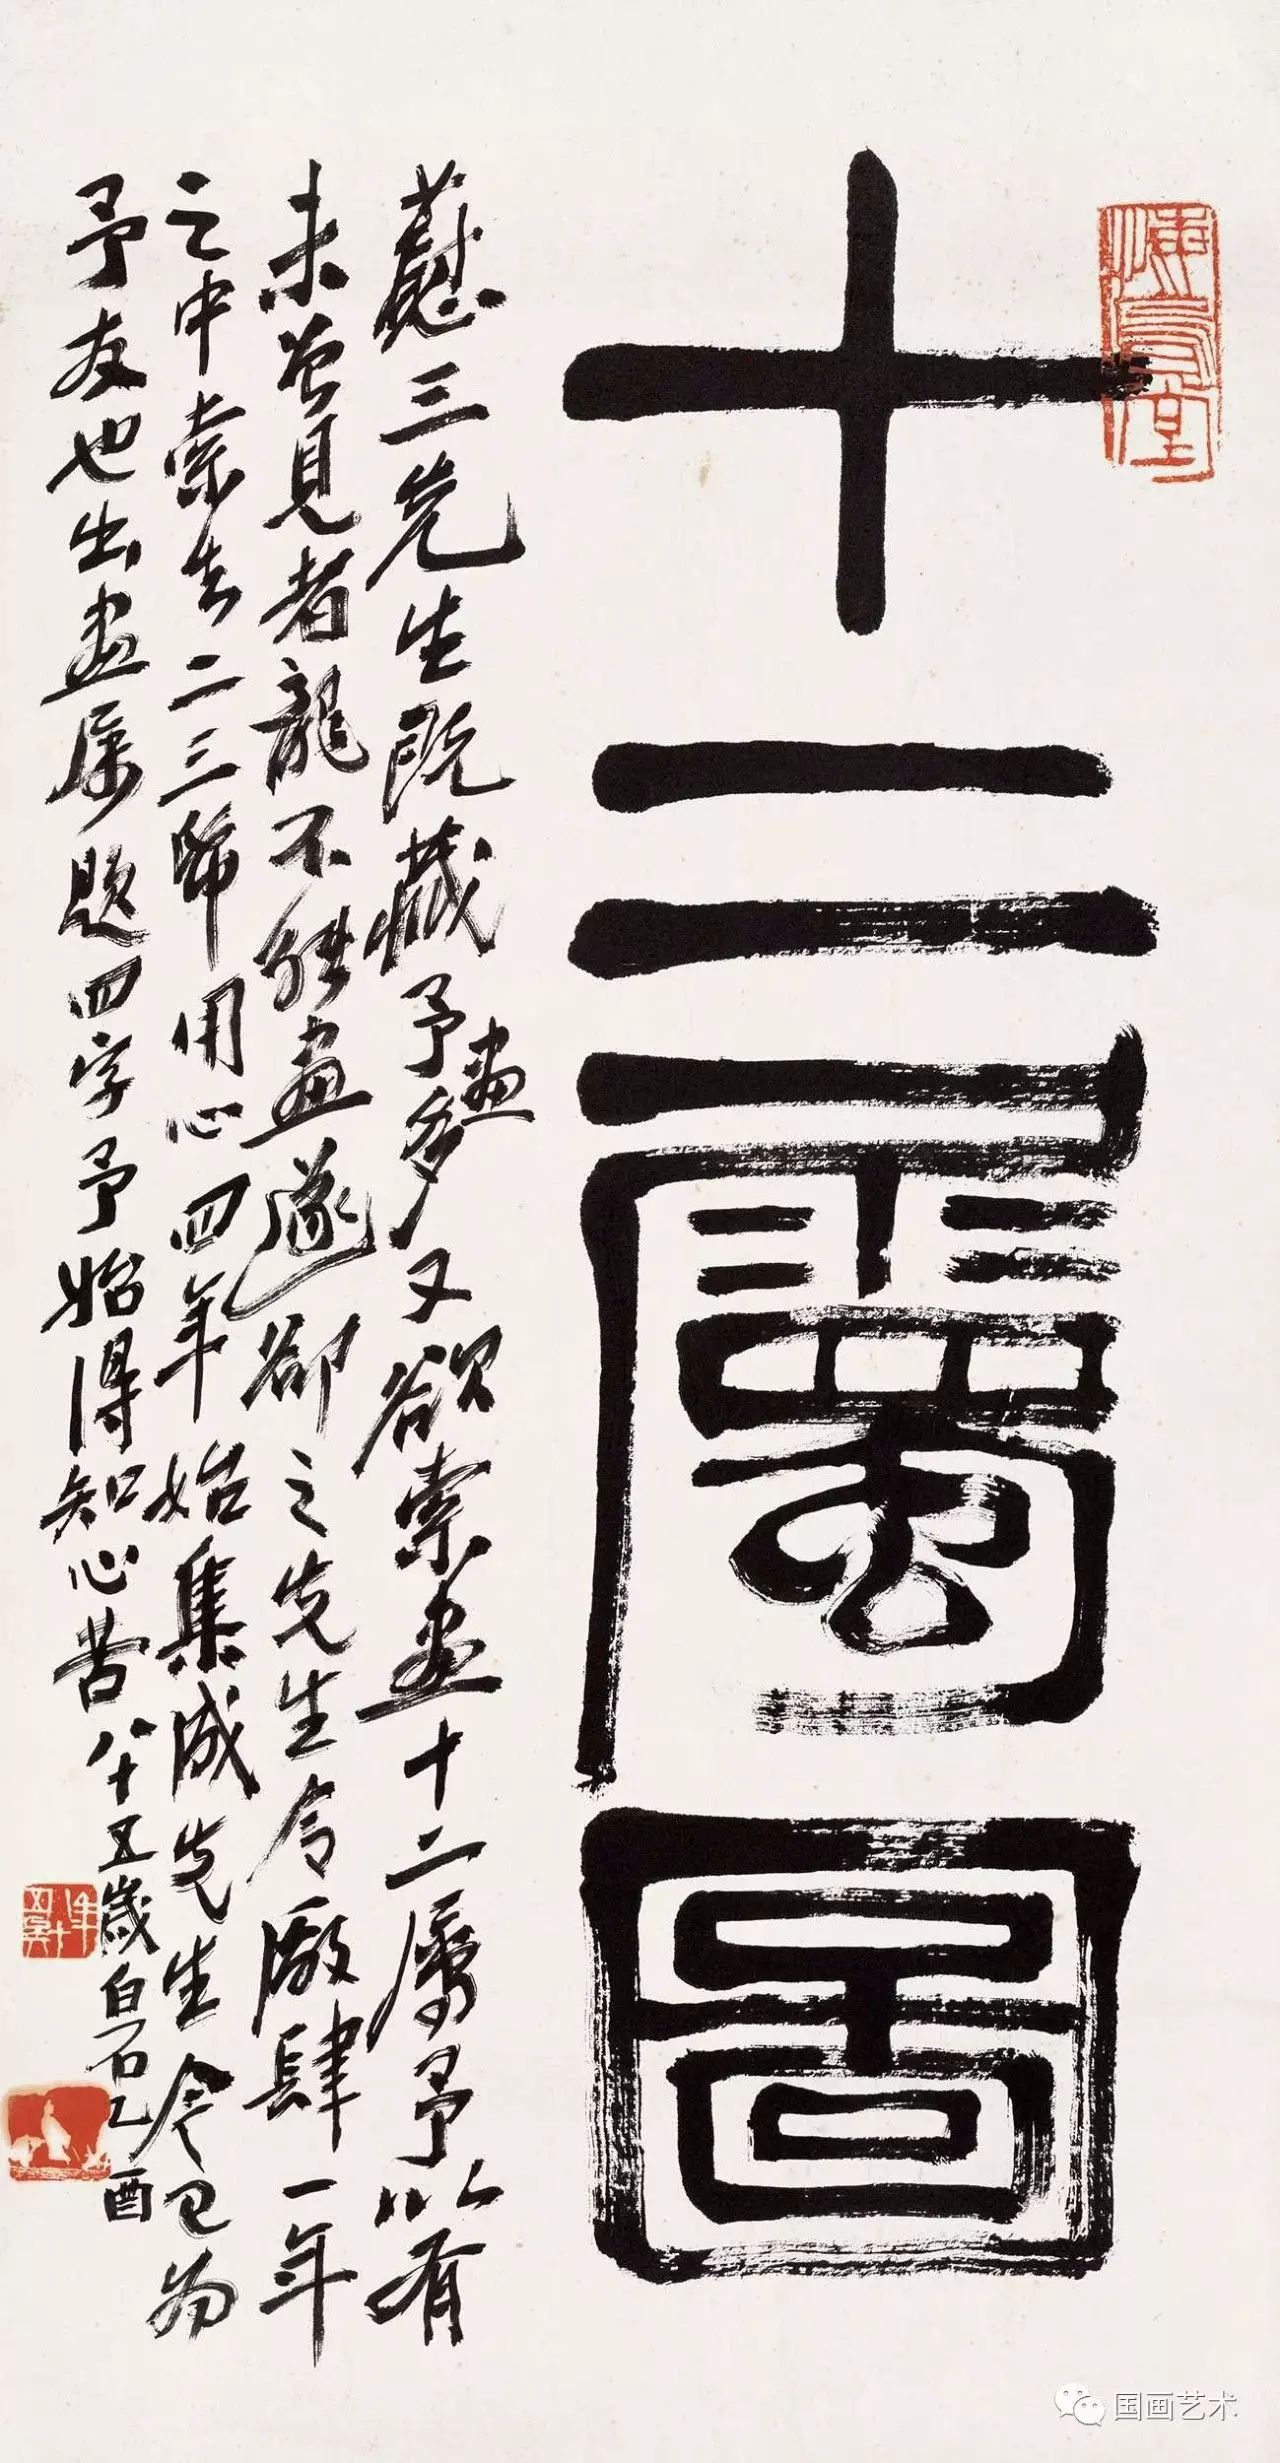 十二属圖
蔾三先生既藏予畫多又欲索畫十二属予以有
未曾見者龍不能畫遂卻之先生令廠肆一年
之中索去二三幅用心四年始集成先生今已为
予友也出畫属題四字予始得知心苦八十五歲白石乙酉
国画艺术